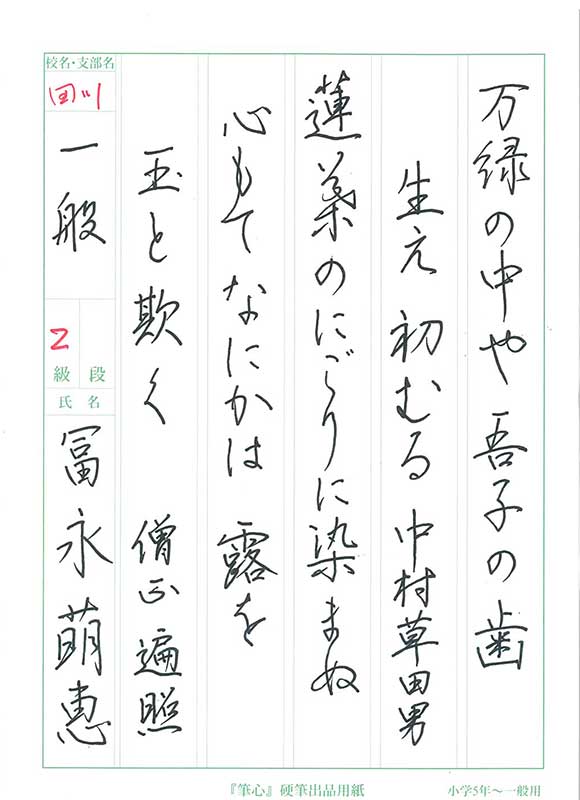 万緑の中や吾子の歯
生え初むる 中村草田男
蓮葉のにごりに染まぬ
心もてなにかは露を
玉と欺く 僧正遍照
校名・支部名
田川
一般
2
級 段
氏名
冨永萌恵
『筆心』硬筆出品用紙
小学5年〜一般用